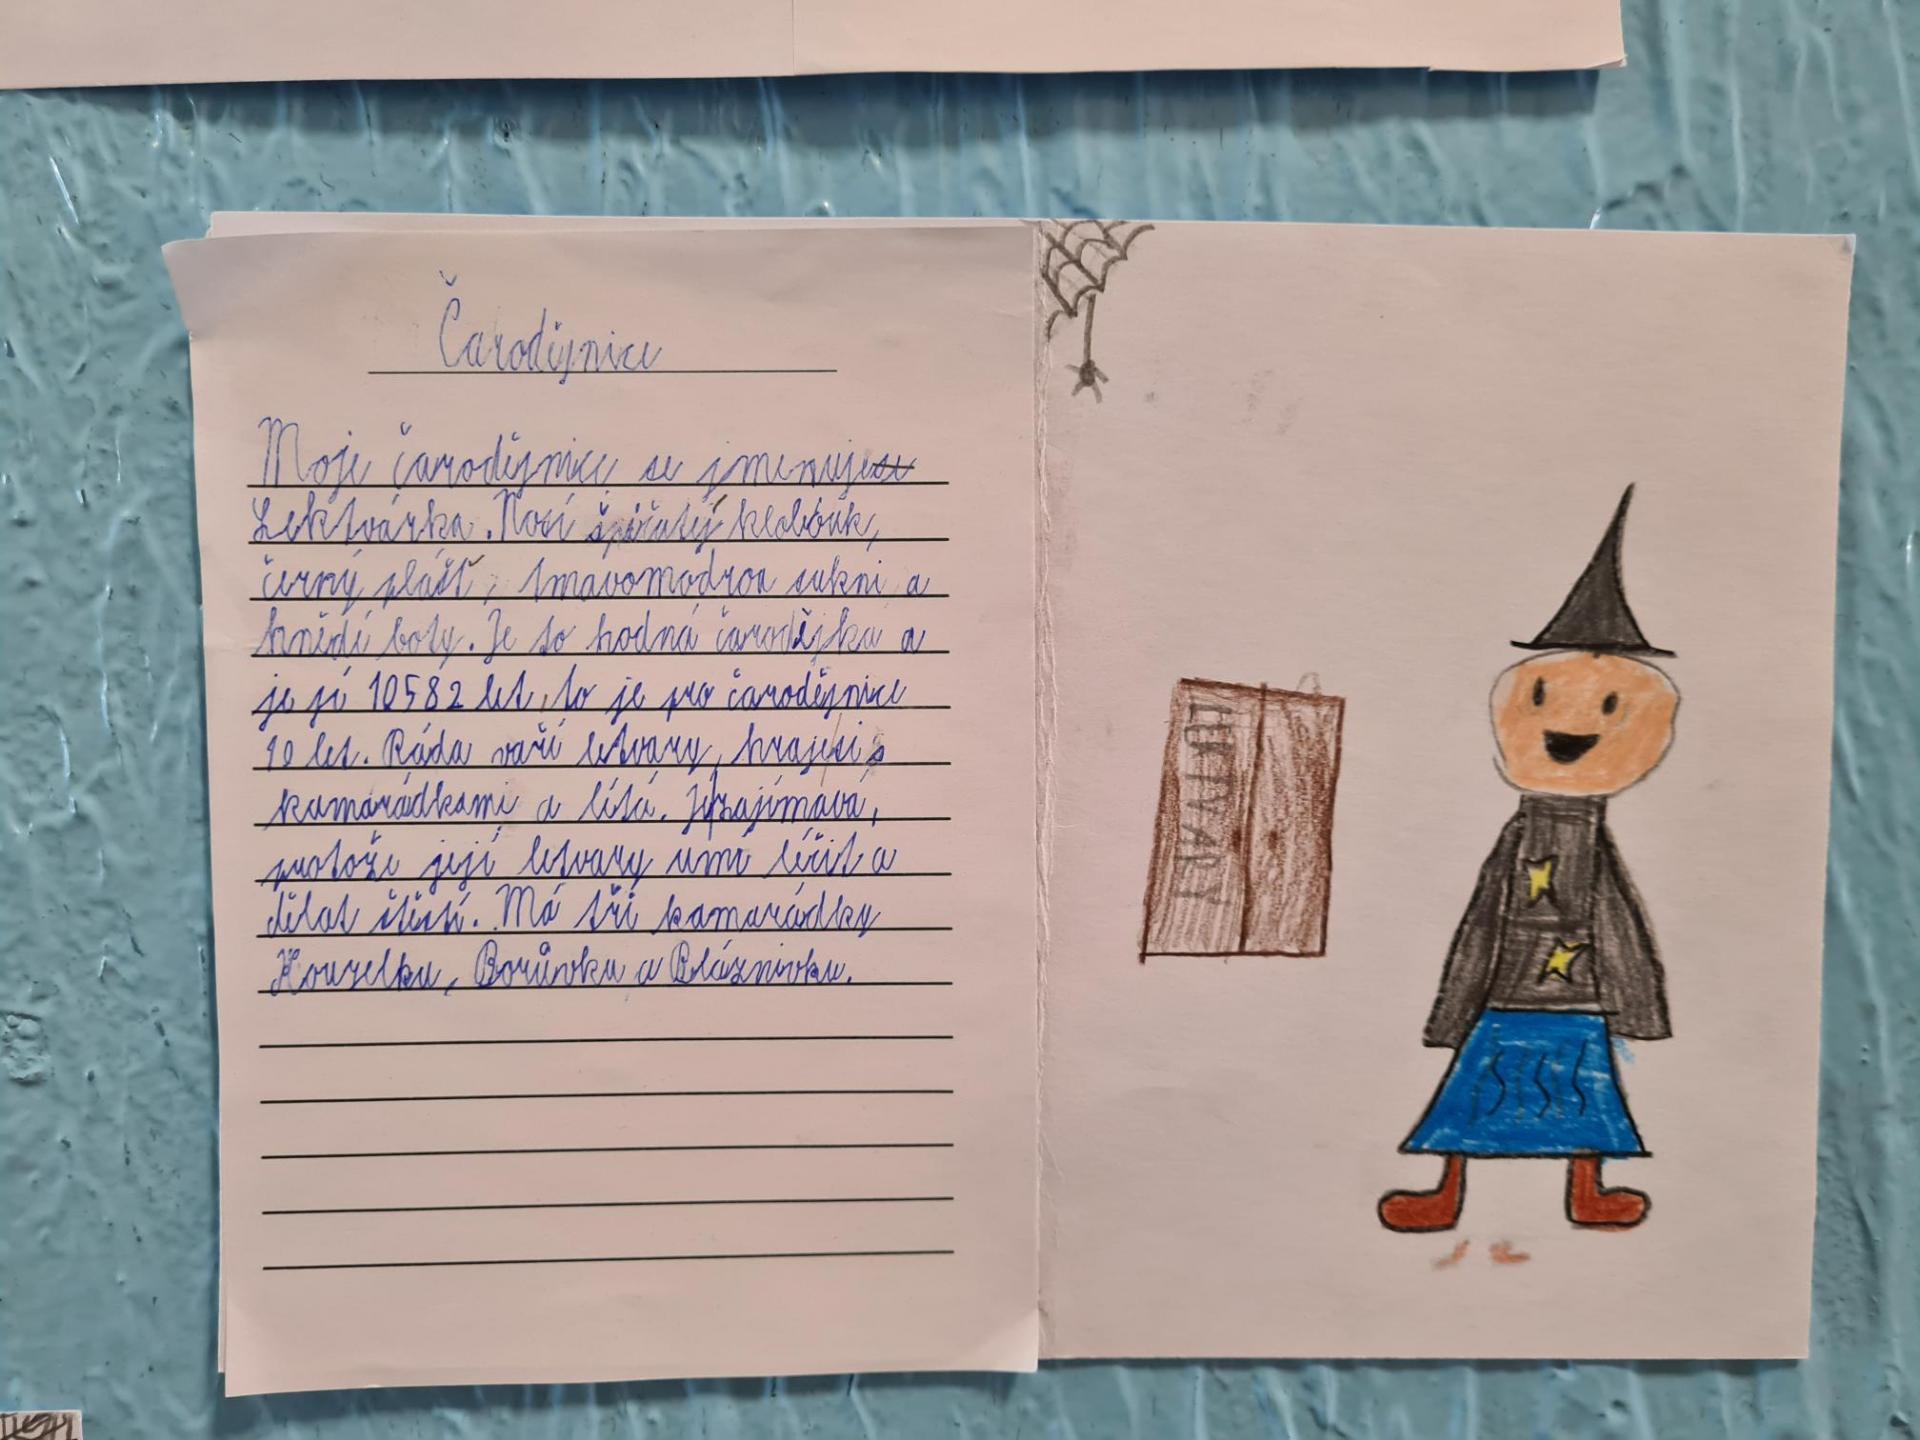 Čarodějnice
Moje čarodějnice se jmenuje
Lektvárka. Nosí špičatý klobouk,
černý plášť, tmavomodrou sukni a
hnědé boty. Je to hodná čarodějka a
je jí 10582 let, to je pro čarodějnice
10 let. Ráda vaří letvary, hraje si s
kamarádkami a lítá. Je zajímavá,
protože její letvary umí léčit a
dělat štěstí. Má tři kamarádky
Kouzelku, Borůvku a Bláznivku.
LEKTVARY